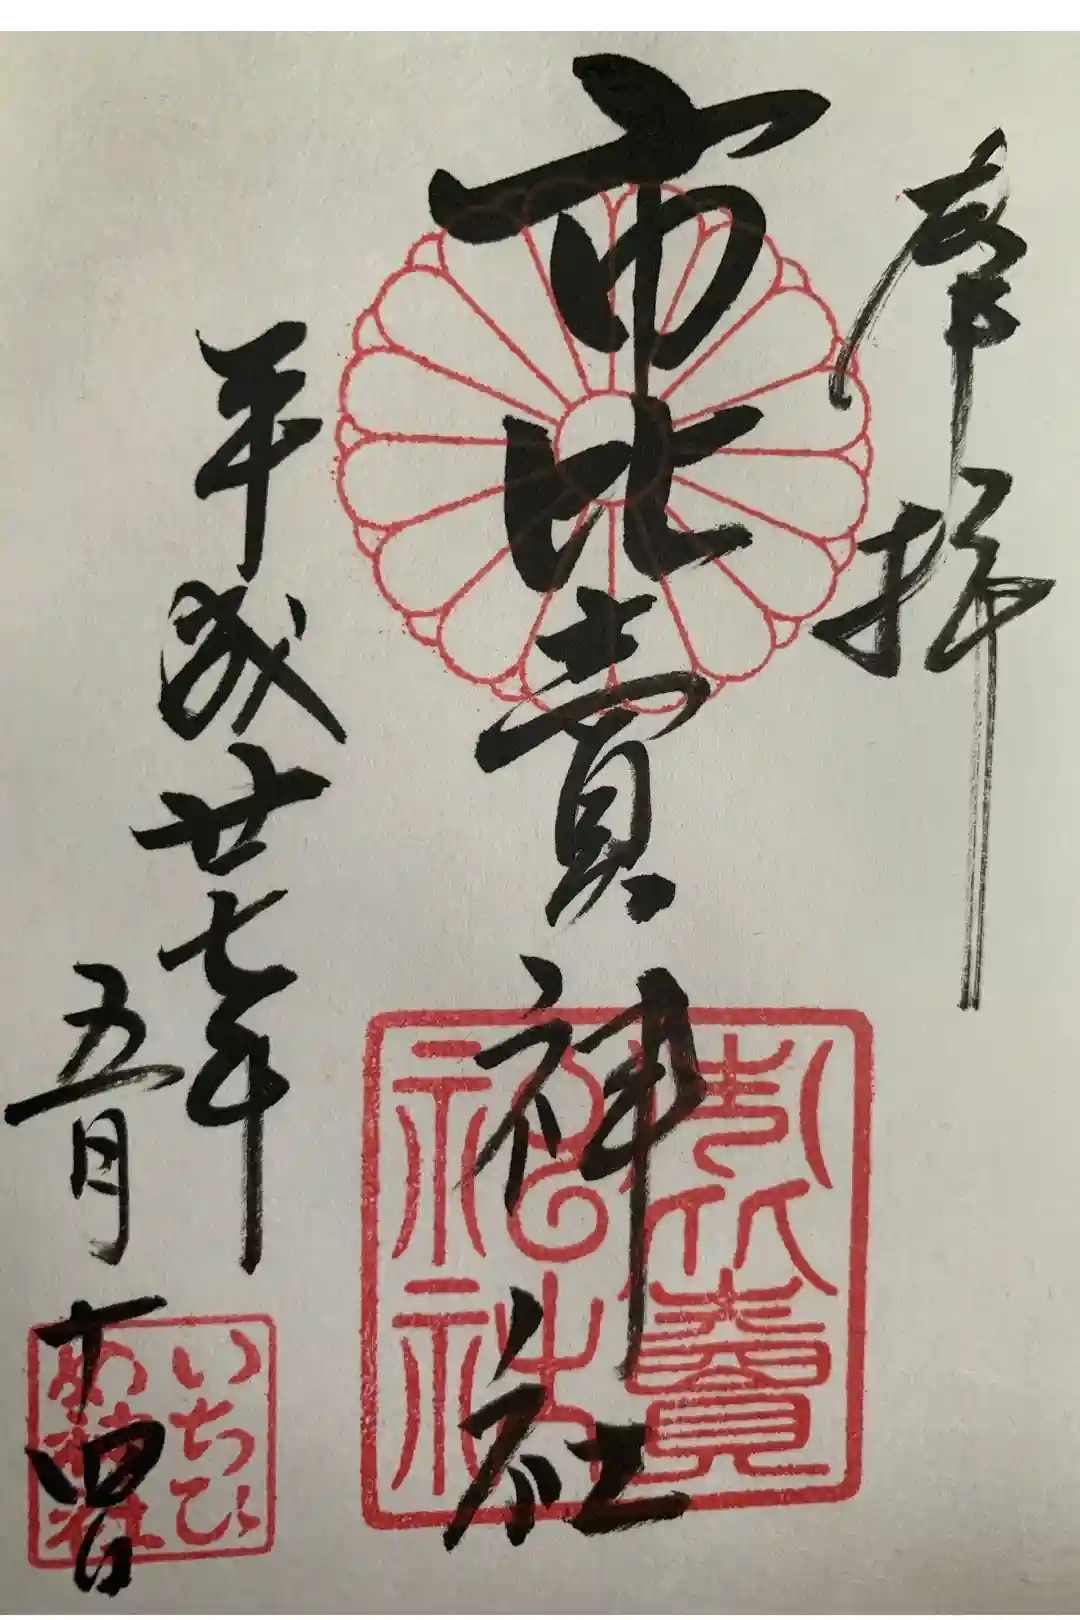 奉拝
市比賣神社
平成廿七年
五月十四日
市比賣
神社
いちひ
め神社